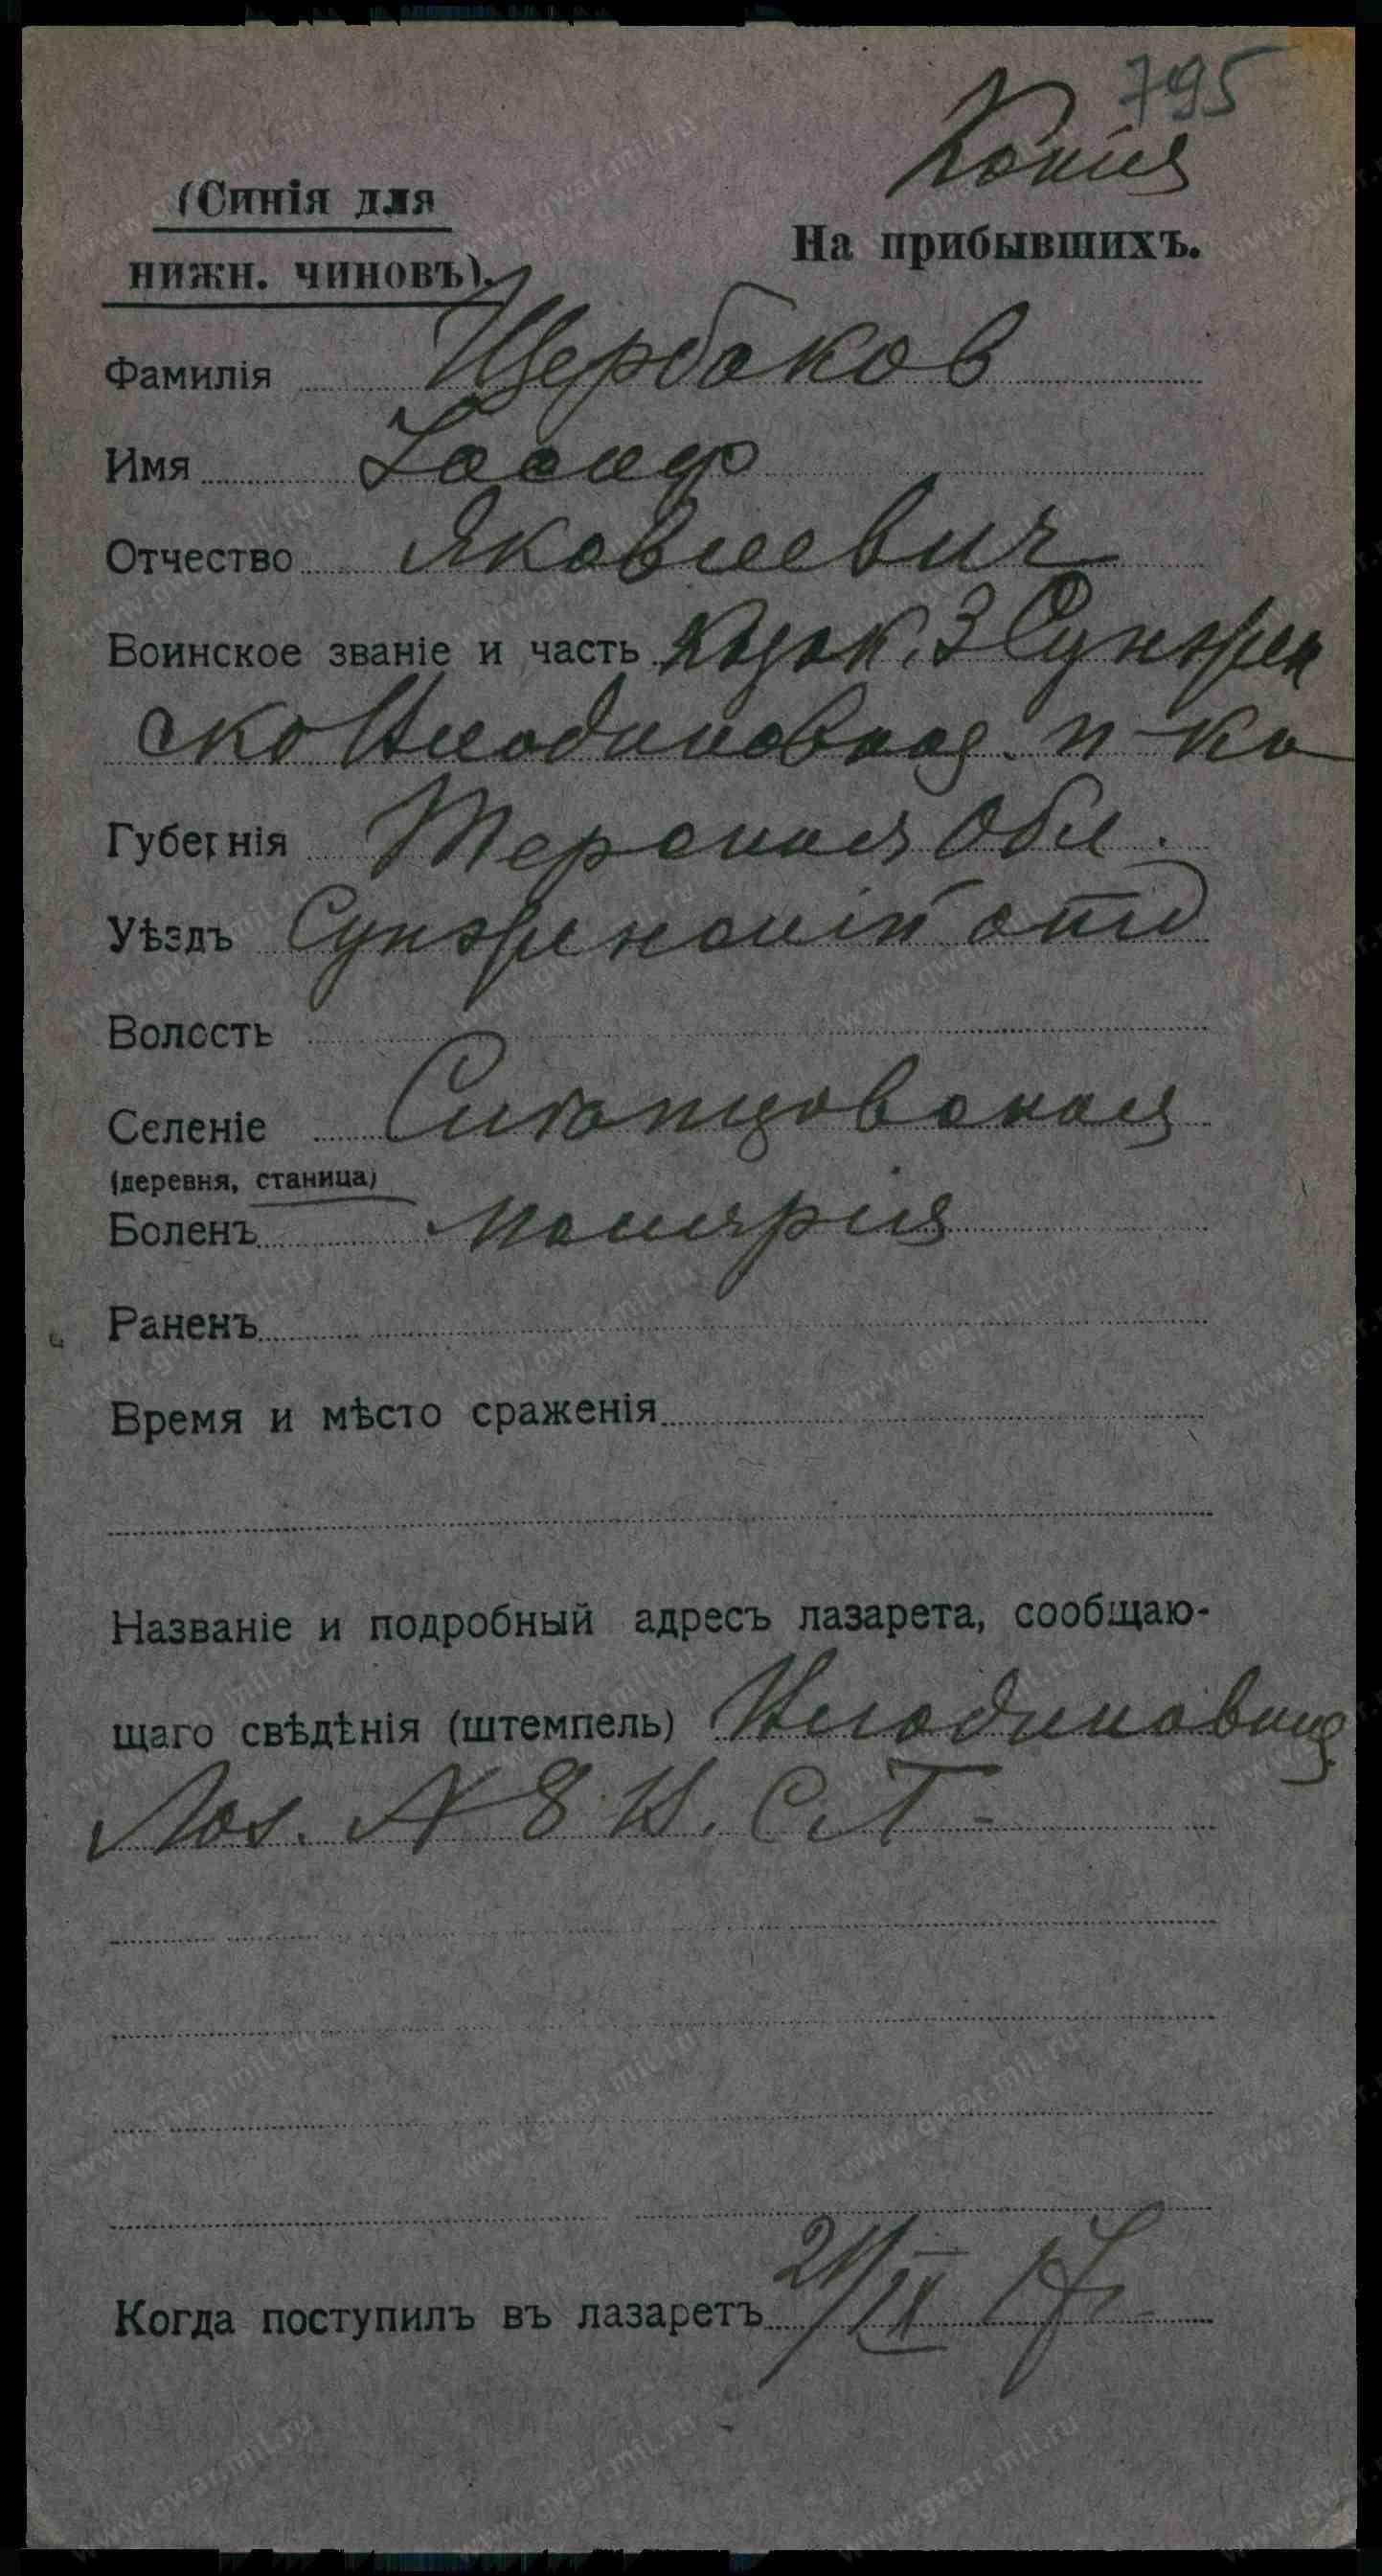 795
Копія
(Синія для
нижн. чиновъ).
На прибывшихъ.
Фамилія Щербаков
Имя Іосиф
Отчество Яковлевич
Воинское званіе и часть Казак, 3 Сунжен
ско Владикавказ. п-ка
Губернія Терская Обл.
Уѣздъ Сунженскій отд
Волость
Селеніе
(деревня, станица)
Боленъ Малярия
Раненъ
Время и мѣсто сраженія
Названіе и подробный адресъ лазарета, сообщаю-
щаго свѣдѣнія (штемпель)
Лаз. № 8
Когда поступилъ въ лазаретъ 21/IX 17